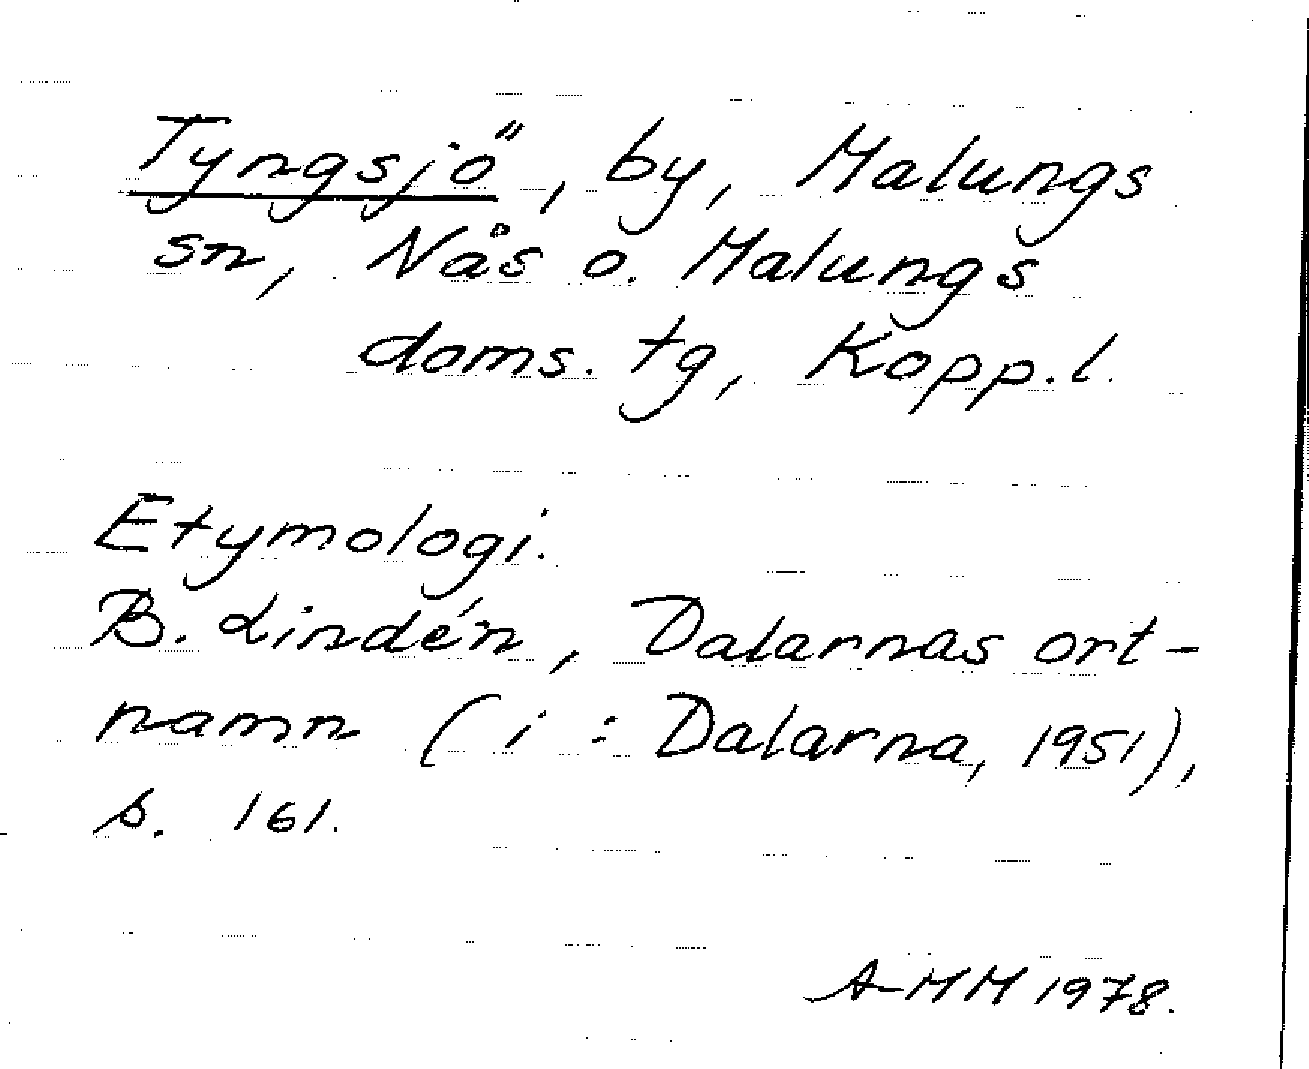 Tyngsjö, by, Malungs
sn, Nås o. Malungs
doms. tg, Kopp.l.
Etymologi.
B. Lindén, Dalarnas ort-
namn (i: Dalarna, 1951),
s. 161.
A-MM 1978.